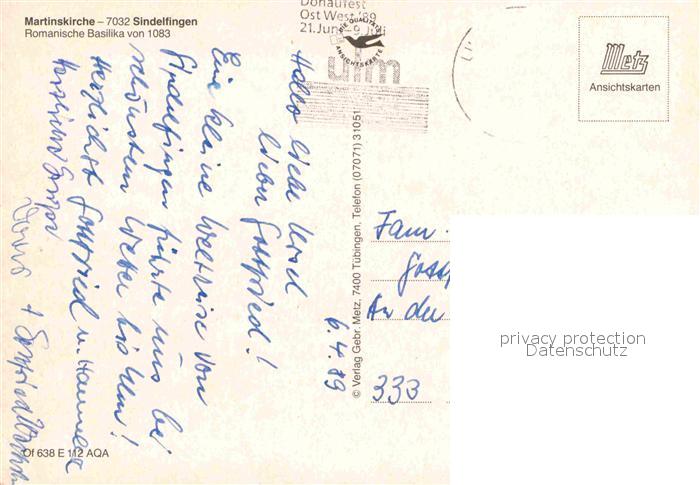 Martinskirche – 7032 Sindelfingen
Romanische Basilika von 1083
Donaufest
Ost West '89
21. Juni – 9. Juli
ulm
DIE QUALITÄTS
ANSICHTSKARTE
Metz
Ansichtskarten
6.4.89
Hallo liebe Ursel
lieber Gottfried!
Eine kleine Weltreise von
Sindelfingen führte uns bei
schönstem Wetter bis Ulm!
Herzlichst Gottfried u. Hannelore
Herzliche Grüße
+
© Verlag Gebr. Metz, 7400 Tübingen, Telefon (07071) 31051
Fam.
An der
333
Of 638 E 112 AQA
privacy protection
Datenschutz